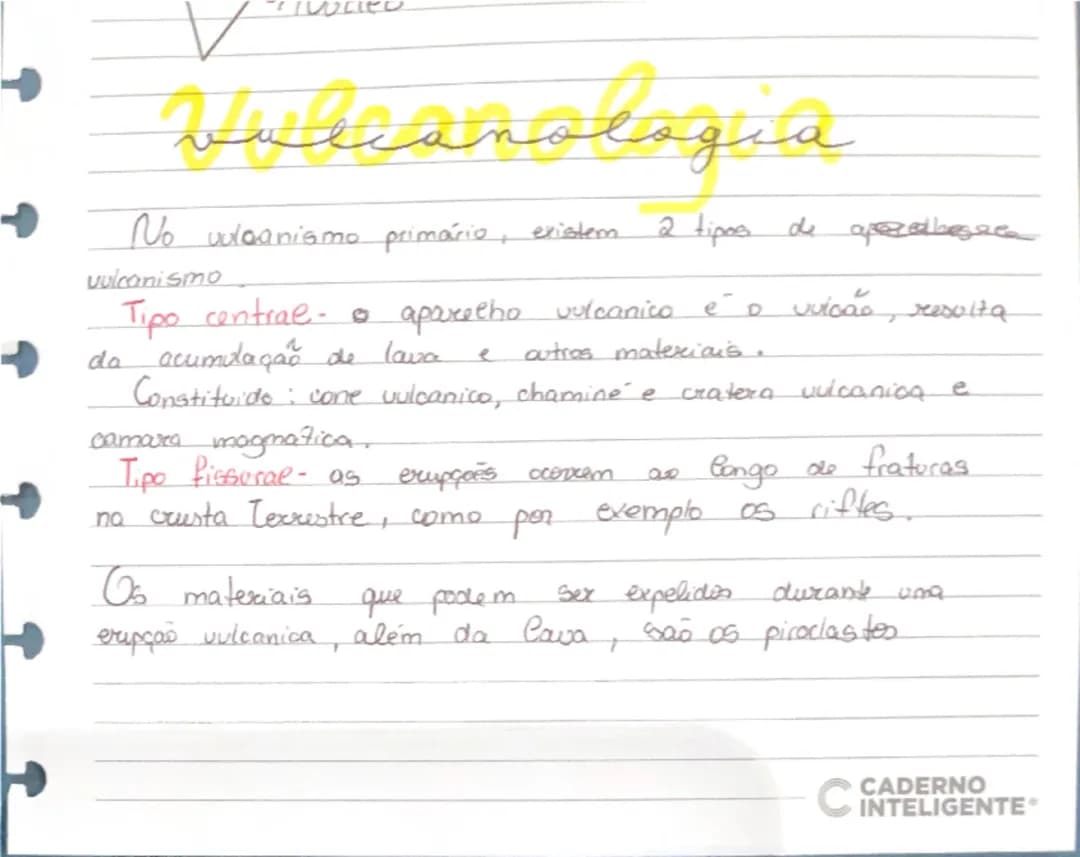 Núcleo
Vulcanologia
No vulcanismo primário, existem 2 tipos de
vulcanismo.
Tipo central - o aparelho vulcanico é o vulcão, resulta
da acumulação de lava e outros materiais.
Constituido: cone vulcanico, chaminé e cratera vulcanica e
camara magmatica.
Tipo fissural - as erupções ocorrem ao longo de fraturas
na crusta Terrestre, como por exemplo os riftes.
Os materiais que podem ser expelidos durante uma
erupção vulcanica, além da lava, são os piroclastos
CADERNO
INTELIGENTE®